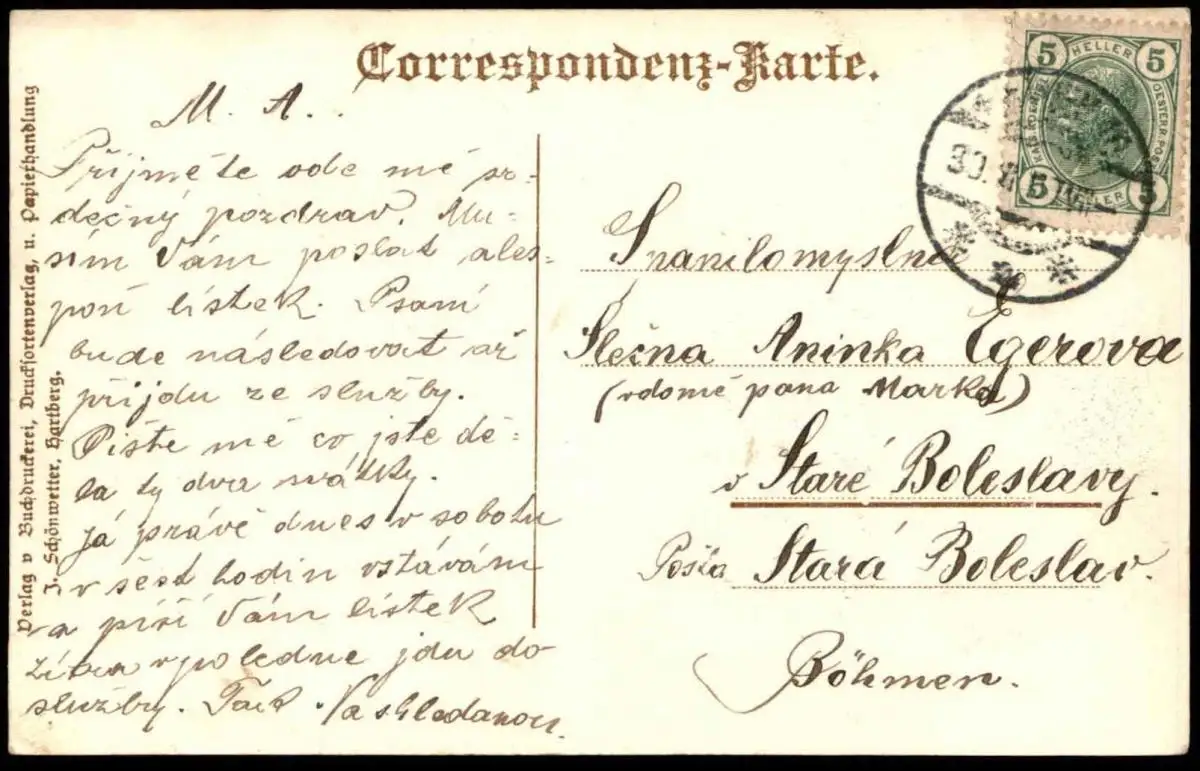 Correspondenz-Karte.
M. A..
Přijměte ode mě sr-
dečný pozdrav. Mu-
sím Vám poslat ales-
poň lístek. Psaní
bude následovat až
přijdu ze služby.
Pište mě co jste dě-
la ty dva svátky.
Já právě dnes v sobotu
v šest hodin vstávám
a píši Vám lístek
zítra v poledne jdu do
služby. Tak Na shledanou.
Verlag v Buchdruckerei, Drucksortenverlag, u. Papierhandlung
J. Schönwetter, Hartberg.
5 HELLER 5
KAIS. KOENIGL. OESTERR. POST
5 HELLER 5
30.
Spanilomyslná
Slečna Aninka Egerova
(v domě pana Marka)
v Staré Boleslavy.
Pošta Stará Boleslav.
Böhmen.